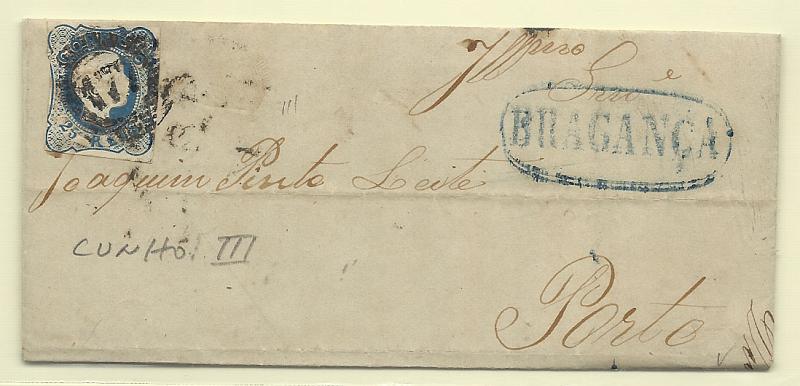 Illmo
Snr
BRAGANÇA
Joaquim Pinto Leite
CUNHO. III
Porto
25 R